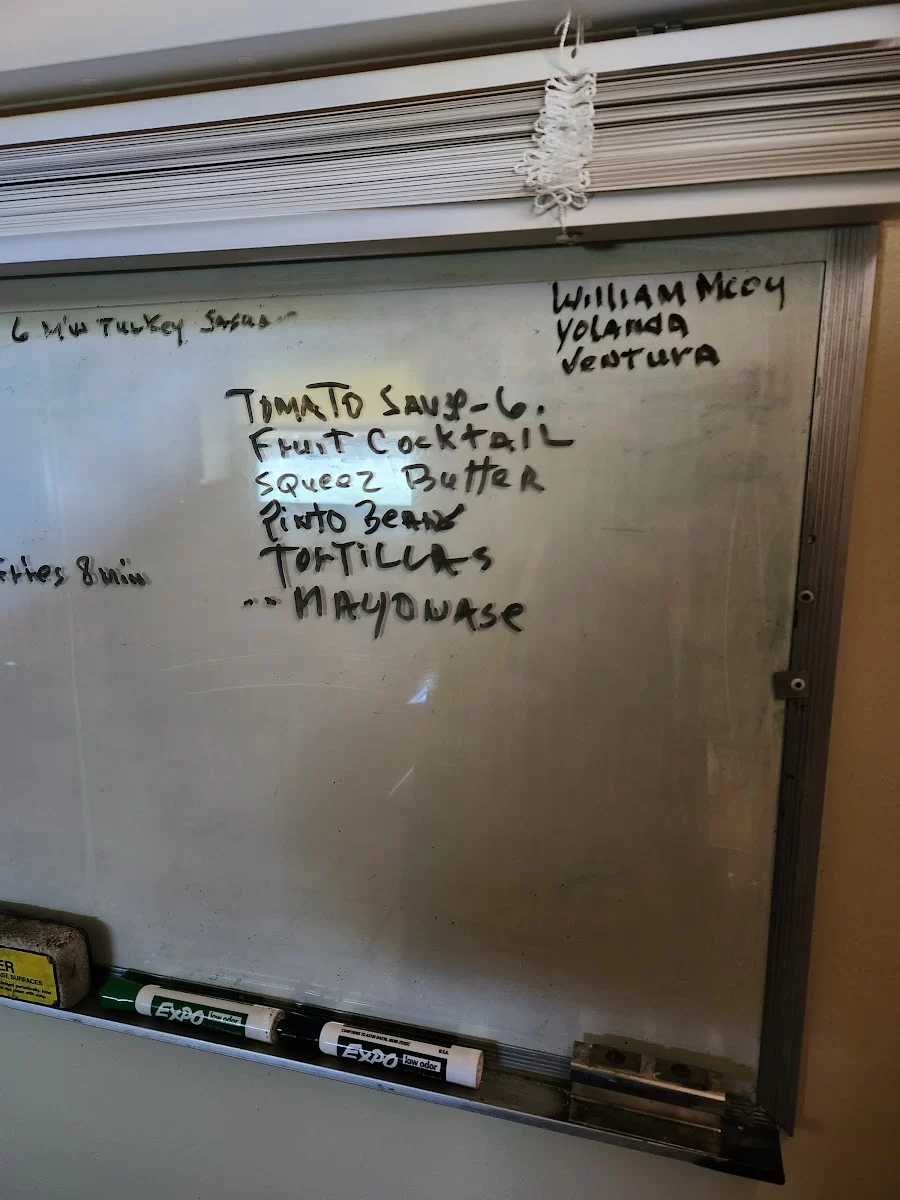 6 Min Turkey
William McCoy
Yolanda
Ventura
Tomato Saup-6.
Fruit Cocktail
Squeez Butter
Pinto Beans
Tortillas
-- Mayonase
Fries 8 min
ER
SURFACES
EXPO low odor
EXPO low odor